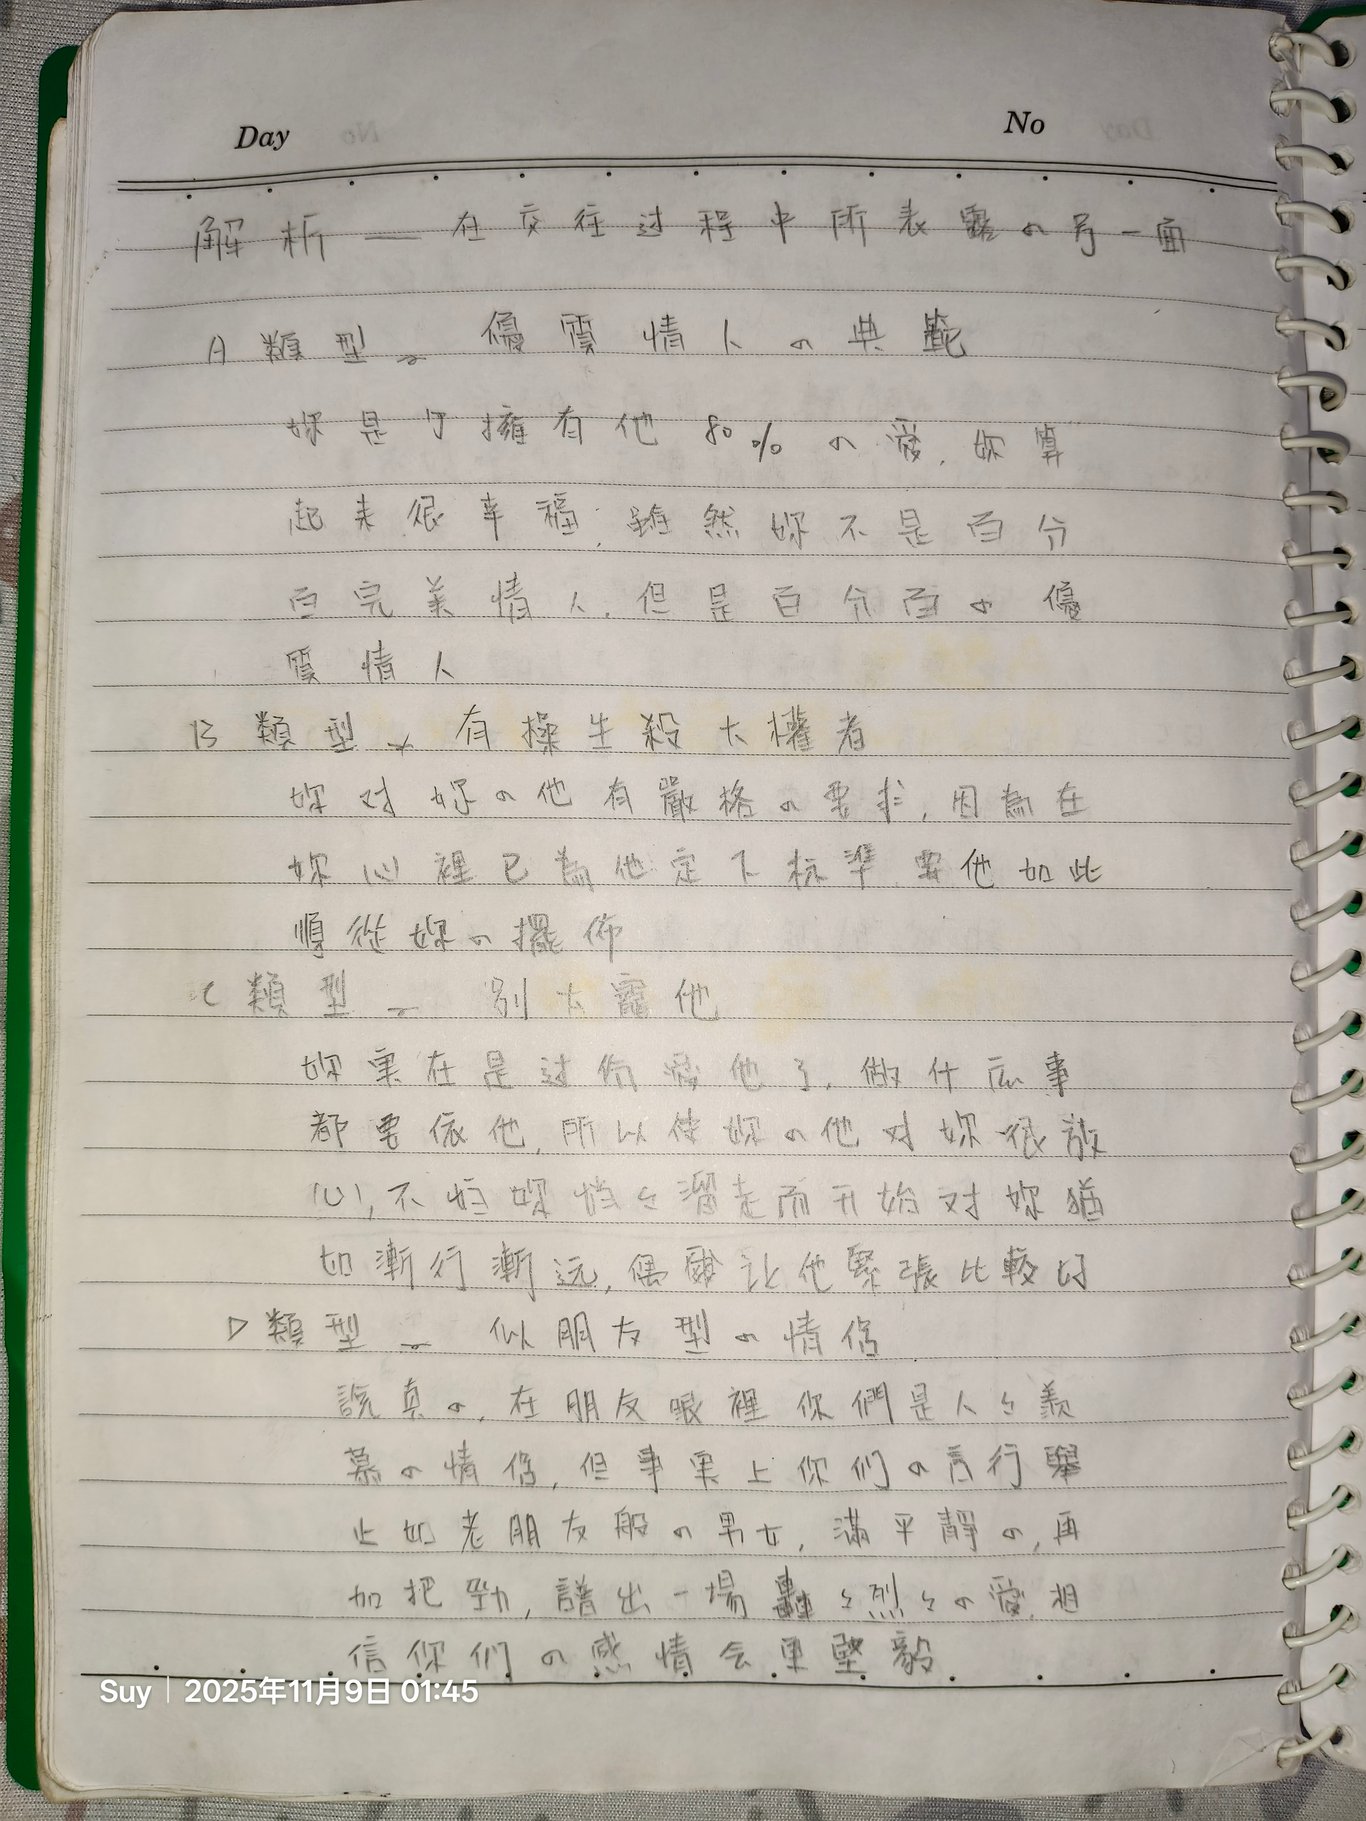 Day No
解析——在交往过程中所表露の另一面
A類型～ 優質情人の典範
妳是可擁有他80%の愛,妳算
起来很幸福,雖然妳不是百分
百完美情人,但是百分百の優
質情人
B類型～ 有操生殺大權者
妳对妳の他有嚴格の要求,因為在
妳心裡已為他定下标準要他如此
順從妳の擺佈
C類型～ 別太寵他
妳實在是过份愛他了,做什庅事
都要依他,所以使妳の他对妳很放
心,不怕妳悄々溜走而开始对妳猶
如漸行漸远,偶爾让他緊張比較好
D類型～ 似朋友型の情侶
說真の,在朋友眼裡你們是人々羨
慕の情侶,但事實上你们の言行舉
止如老朋友般の男女,滿平靜の,再
加把勁,譜出一場轟々烈々の愛,相
信你们の感情会更堅毅
Suy | 2025年11月9日 01:45